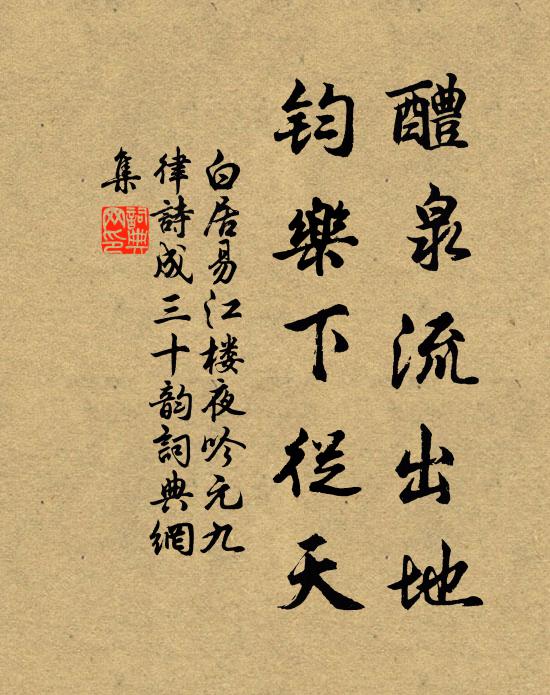 醴泉流出地
鈞樂下從天
白居易江楼夜吟元九
律詩成三十韵詞典網
集
詞典網印